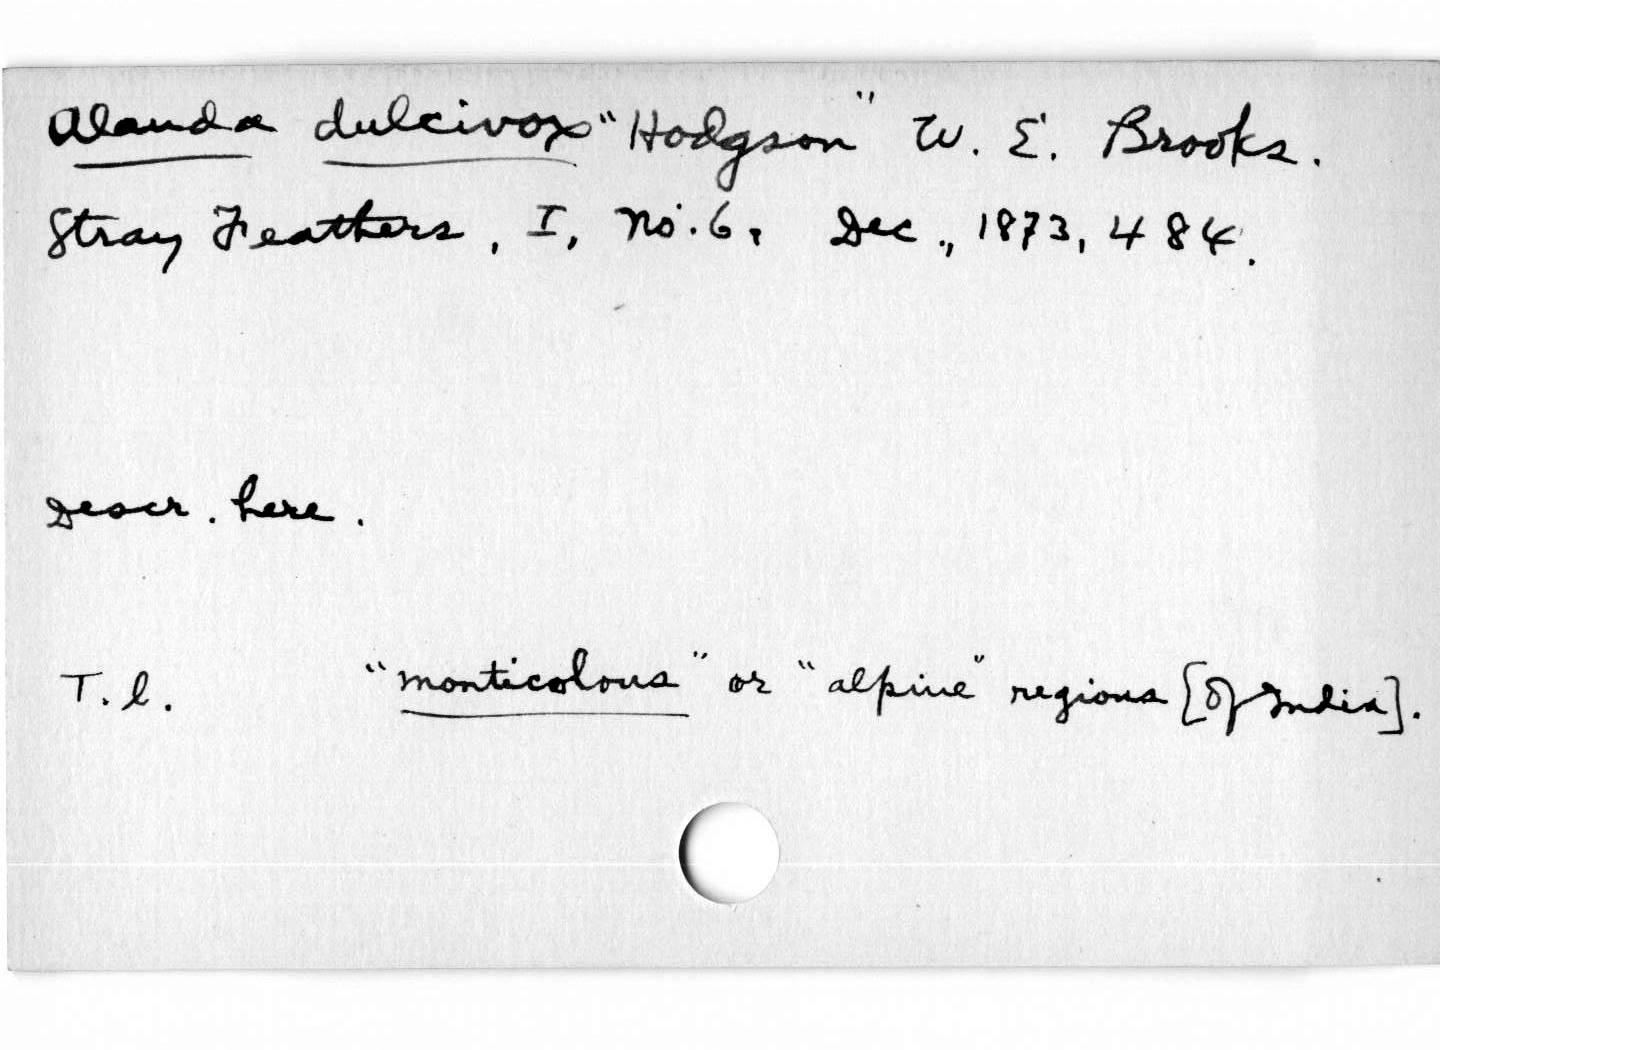 Alauda dulcivox "Hodgson" W. E. Brooks.
Stray Feathers, I, No. 6, Dec., 1873, 484.
Descr. here.
T. l. "monticolous" or "alpine" regions [of India].